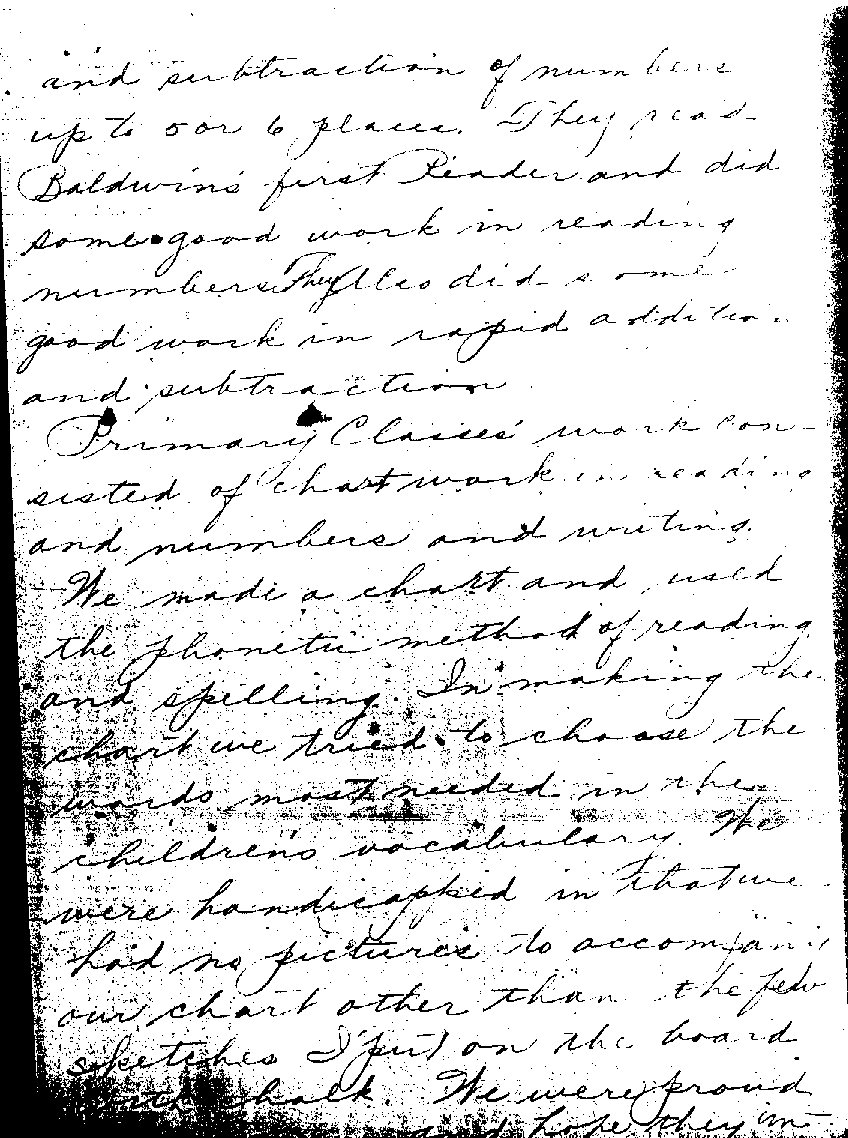 and subtraction of numbers
up to 5 or 6 places. They read
Baldwin's first Reader and did
some good work in reading
numbers. They Also did some
good work in rapid addition
and subtraction
Primary Classes' work con-
sisted of chart work in reading
and numbers and writing.
We made a chart and used
the phonetic method of reading
and spelling. In making the
chart we tried to choose the
words most needed in the
children's vocabulary. We
were handicapked in that we
had no pictures to accompany
our chart other than the few
sketches I put on the board
with chalk. We were proud
and hope they im-